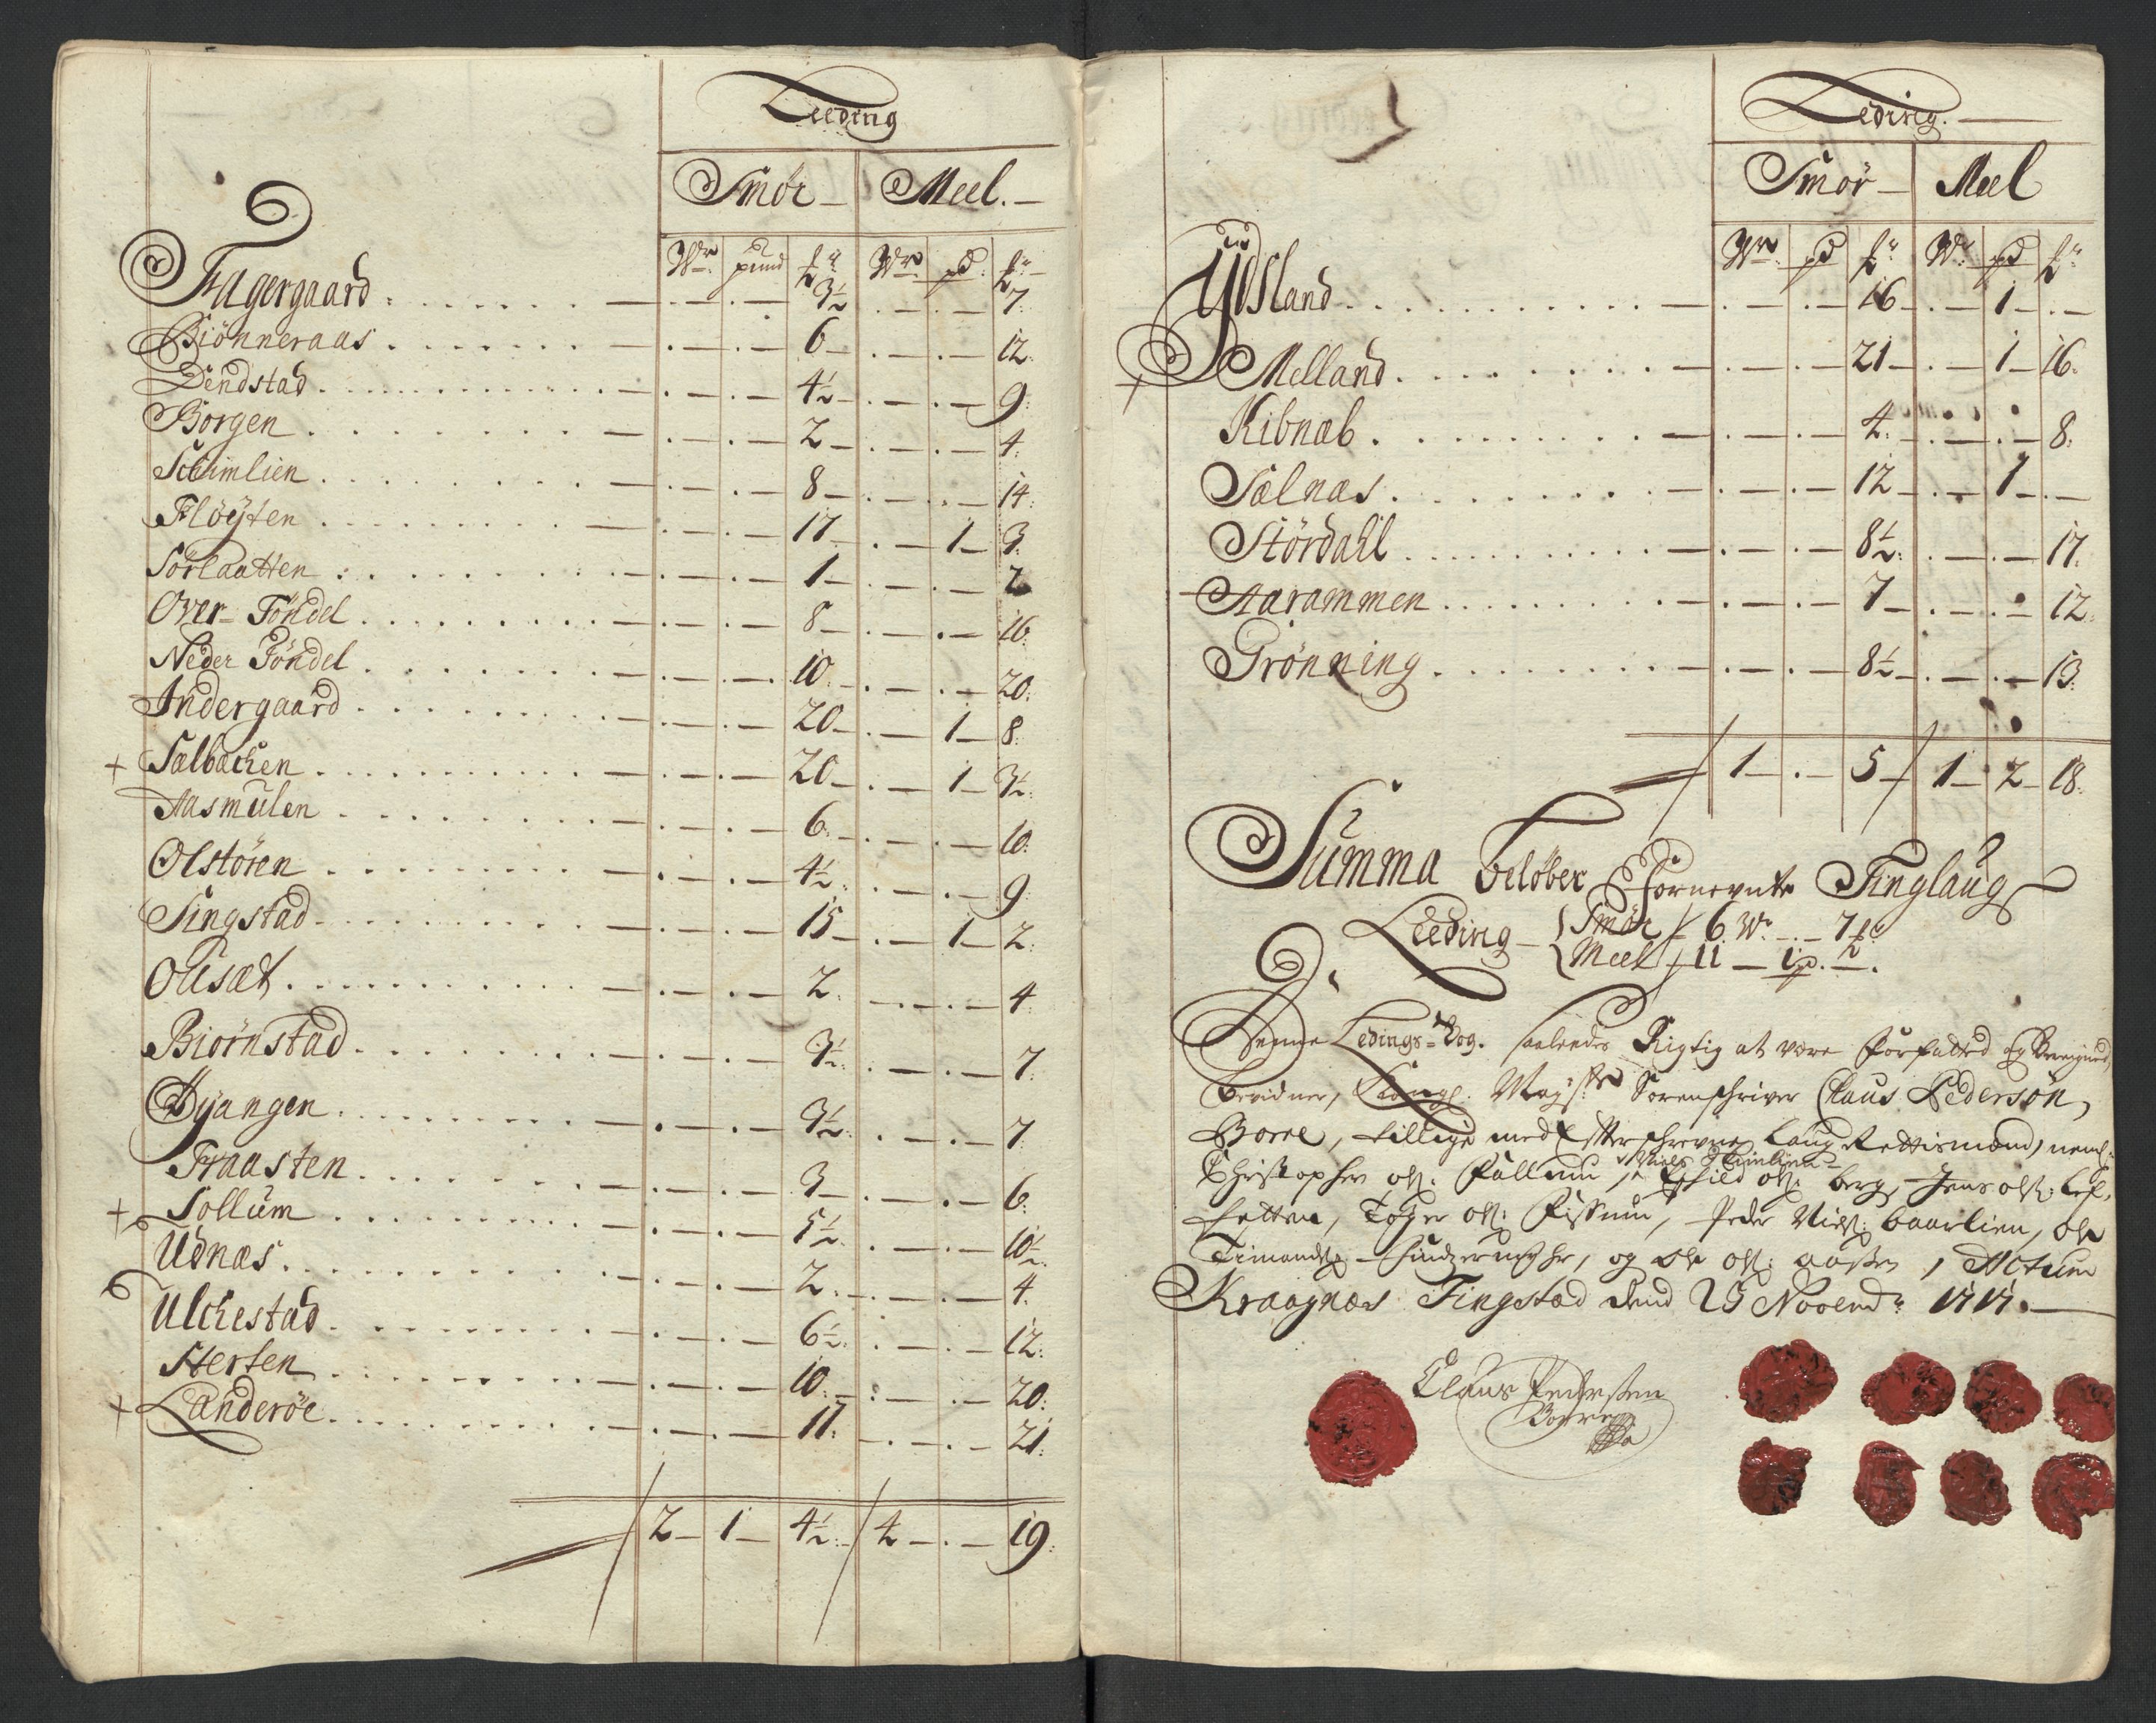 Leeding
Smör – Meel. –
Wr. pund ℔r Wr. pd. ℔r
Fagergaard . . . . . . . — . — . — 3½ . — . — 7.
Biönneraas . . . . . . . — . — . — 6 — . — . — 12.
Dendstad . . . . . . . — . — . — 4½ — . — . — 9.
Borgen . . . . . . . — . — . — 2 — . — . — 4.
Schimlien . . . . . . . — . — . — 8 — . — . — 14.
Flöyten . . . . . . . — . — . — 17 — . — 1 — 3.
Sörlaatten . . . . . . . — . — . — 1 — . — . — 2
Over - Föndel . . . . . . . — . — . — 8 — . — . — 16.
Neder Föndel . . . . . . . — . — . — 10 — . — . — 20.
Indergaard . . . . . . . — . — . — 20 — . — 1 — 8.
+ Sælbachen . . . . . . . — . — . — 20 — . — 1 — 3½.
Aasmulen . . . . . . . — . — . — 6. — . — . — 10.
Olstören . . . . . . . — . — . — 4½. . — . — 9.
Singstad . . . . . . . — . — . — 15 — . — 1 — 2.
Olisæt . . . . . . . — . — . — 2. . — . — 4.
Biörnstad . . . . . . . — . — . — 3½. . — . — 7.
Dyangen . . . . . . . — . — . — 3½. . — . — 7.
Fraasten . . . . . . . — . — . — 3 — . — . — 6.
+ Sollum . . . . . . . — . — . — 5½. . — . — 10½.
Udnæs . . . . . . . — . — . — 2. . — . — 4.
Ulchestad . . . . . . . — . — . — 6½. . — . — 12.
Sterten . . . . . . . — . — . — 10. — . — . — 20.
+ Landeröe . . . . . . . — . — . — 11. — . — . — 21.
2 — 1 — 4½. 4 — . — 19.
Leding. —
Smör – Meel
Wr. pd ℔r Wr. pd ℔r
Ydsland . . . . . . . — . — . — 16 — . — 1 — . —
+ Melland . . . . . . . — . — . — 21 — . — 1 — 16.
Kibnæb . . . . . . . — . — . — 4. — . — . — 8.
Sælnæs . . . . . . . — . — . — 12 — . — 1 — . —
Stördahl . . . . . . . — . — . — 8½. . — . — 17.
Aarammen . . . . . . . — . — . — 7 — . — . — 12.
Grönning . . . . . . . — . — . — 8½ — . — . — 13.
1 — . — 5 — 1 — 2 — 18.
Summa beløber Efornevnte Tinglaug
Leeding – Smör 6 Wr — . — 7 ℔
Meel 11 — 1 pd. — .
Denne Ledings-Bog. saaledes Rigtig at være forfatted og
bevidner, Kongl. Mayst Sorenschriver Claus Pedersøn,
Borre, tillige med Efterschrevne Laug Rettismænd, neml:
Niels Skimlien
Christopher ols. Sollum, ols. berg, Jens ols:
ols: Rissum, Peder Niels: baarlien, ole
og ole ols: aasten, Actum
Kraagnæs Tingstæd dend 25 Novemb: 1717. —
Claus Pedersen
Borre